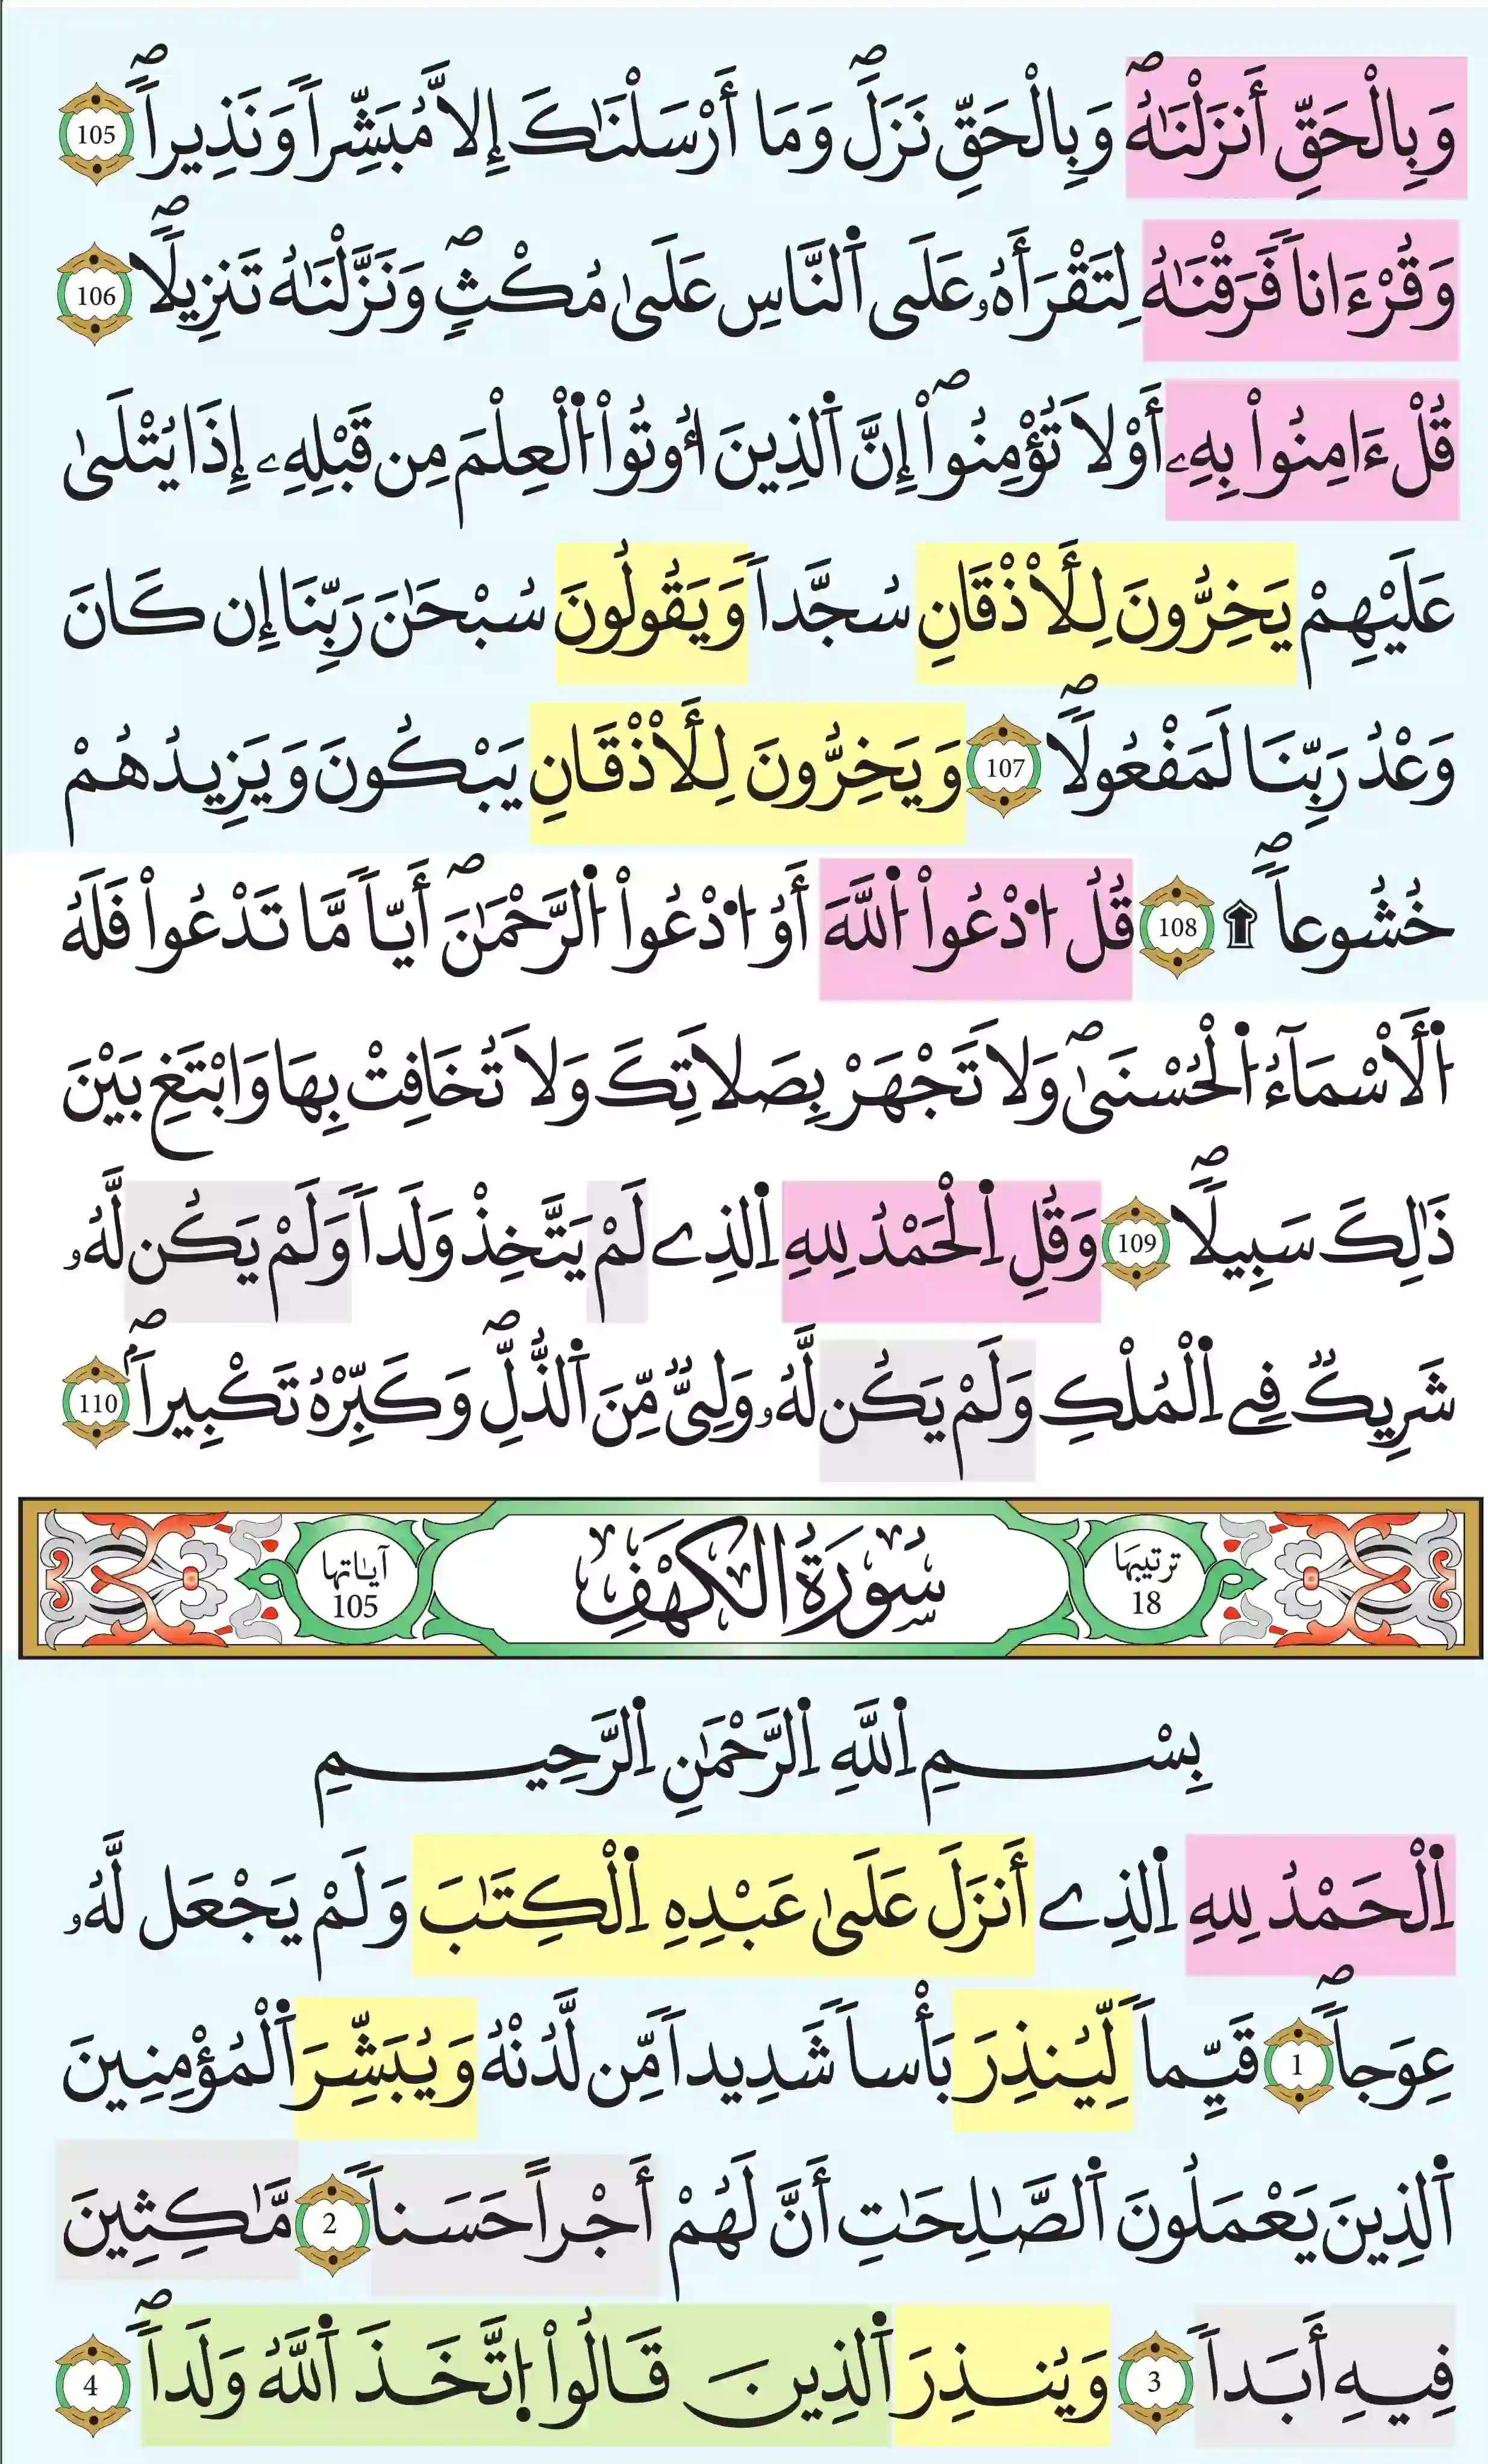 وَبِالْحَقِّ أَنزَلْنَٰهُۖ وَبِالْحَقِّ نَزَلَۖ وَمَا أَرْسَلْنَٰكَ إِلَّا مُبَشِّراً وَنَذِيراًۖ 105
وَقُرْءَاناً فَرَقْنَٰهُ لِتَقْرَأَهُۥ عَلَى اَ۬لنَّاسِ عَلَىٰ مُكْثٖۖ وَنَزَّلْنَٰهُ تَنزِيلاًۖ 106
قُلْ ءَامِنُواْ بِهِۦ أَوْ لَا تُؤْمِنُواْۖ إِنَّ اَ۬لذِينَ أُوتُواْ اُ۬لْعِلْمَ مِن قَبْلِهِۦ إِذَا يُتْلَىٰ
عَلَيْهِمْ يَخِرُّونَ لِلَأذْقَانِ سُجَّداً وَيَقُولُونَ سُبْحَٰنَ رَبِّنَا إِن كَانَ
وَعْدُ رَبِّنَا لَمَفْعُولاًۖ 107 وَيَخِرُّونَ لِلَأذْقَانِ يَبْكُونَ وَيَزِيدُهُمْ
خُشُوعاًۖ ۩ 108 قُلُ اُ۟دْعُواْ اُ۬للَّهَ أَوُ اُ۟دْعُواْ اُ۬لرَّحْمَٰنَۖ أَيّاً مَّا تَدْعُواْ فَلَهُ
اُ۬لَأسْمَآءُ اُ۬لْحُسْنَىٰۖ وَلَا تَجْهَرْ بِصَلَاتِكَ وَلَا تُخَافِتْ بِهَا وَابْتَغِ بَيْنَ
ذَٰلِكَ سَبِيلاًۖ 109 وَقُلِ اِ۬لْحَمْدُ لِلهِ اِ۬لذِے لَمْ يَتَّخِذْ وَلَداً وَلَمْ يَكُن لَّهُۥ
شَرِيكٌ فِے اِ۬لْمُلْكِ وَلَمْ يَكُن لَّهُۥ وَلِيٌّ مِّنَ اَ۬لذُّلِّۖ وَكَبِّرْهُ تَكْبِيراًۖ 110
ترتيبها 18 سُورَةُ الْكَهْفِ آياتها 105
بِسْمِ اِ۬للَّهِ اِ۬لرَّحْمَٰنِ اِ۬لرَّحِيمِ
اِ۬لْحَمْدُ لِلهِ اِ۬لذِے أَنزَلَ عَلَىٰ عَبْدِهِ اِ۬لْكِتَٰبَ وَلَمْ يَجْعَل لَّهُۥ
عِوَجاًۖ 1 قَيِّماً لِّيُنذِرَ بَأْساً شَدِيداً مِّن لَّدُنْهُ وَيُبَشِّرَ اَ۬لْمُؤْمِنِينَ
اَ۬لذِينَ يَعْمَلُونَ اَ۬لصَّٰلِحَٰتِ أَنَّ لَهُمْ أَجْراً حَسَناً 2 مَّٰكِثِينَ
فِيهِ أَبَداً 3 وَيُنذِرَ اَ۬لذِينَ قَالُواْ اُ۪تَّخَذَ اَ۬للَّهُ وَلَداًۖ 4